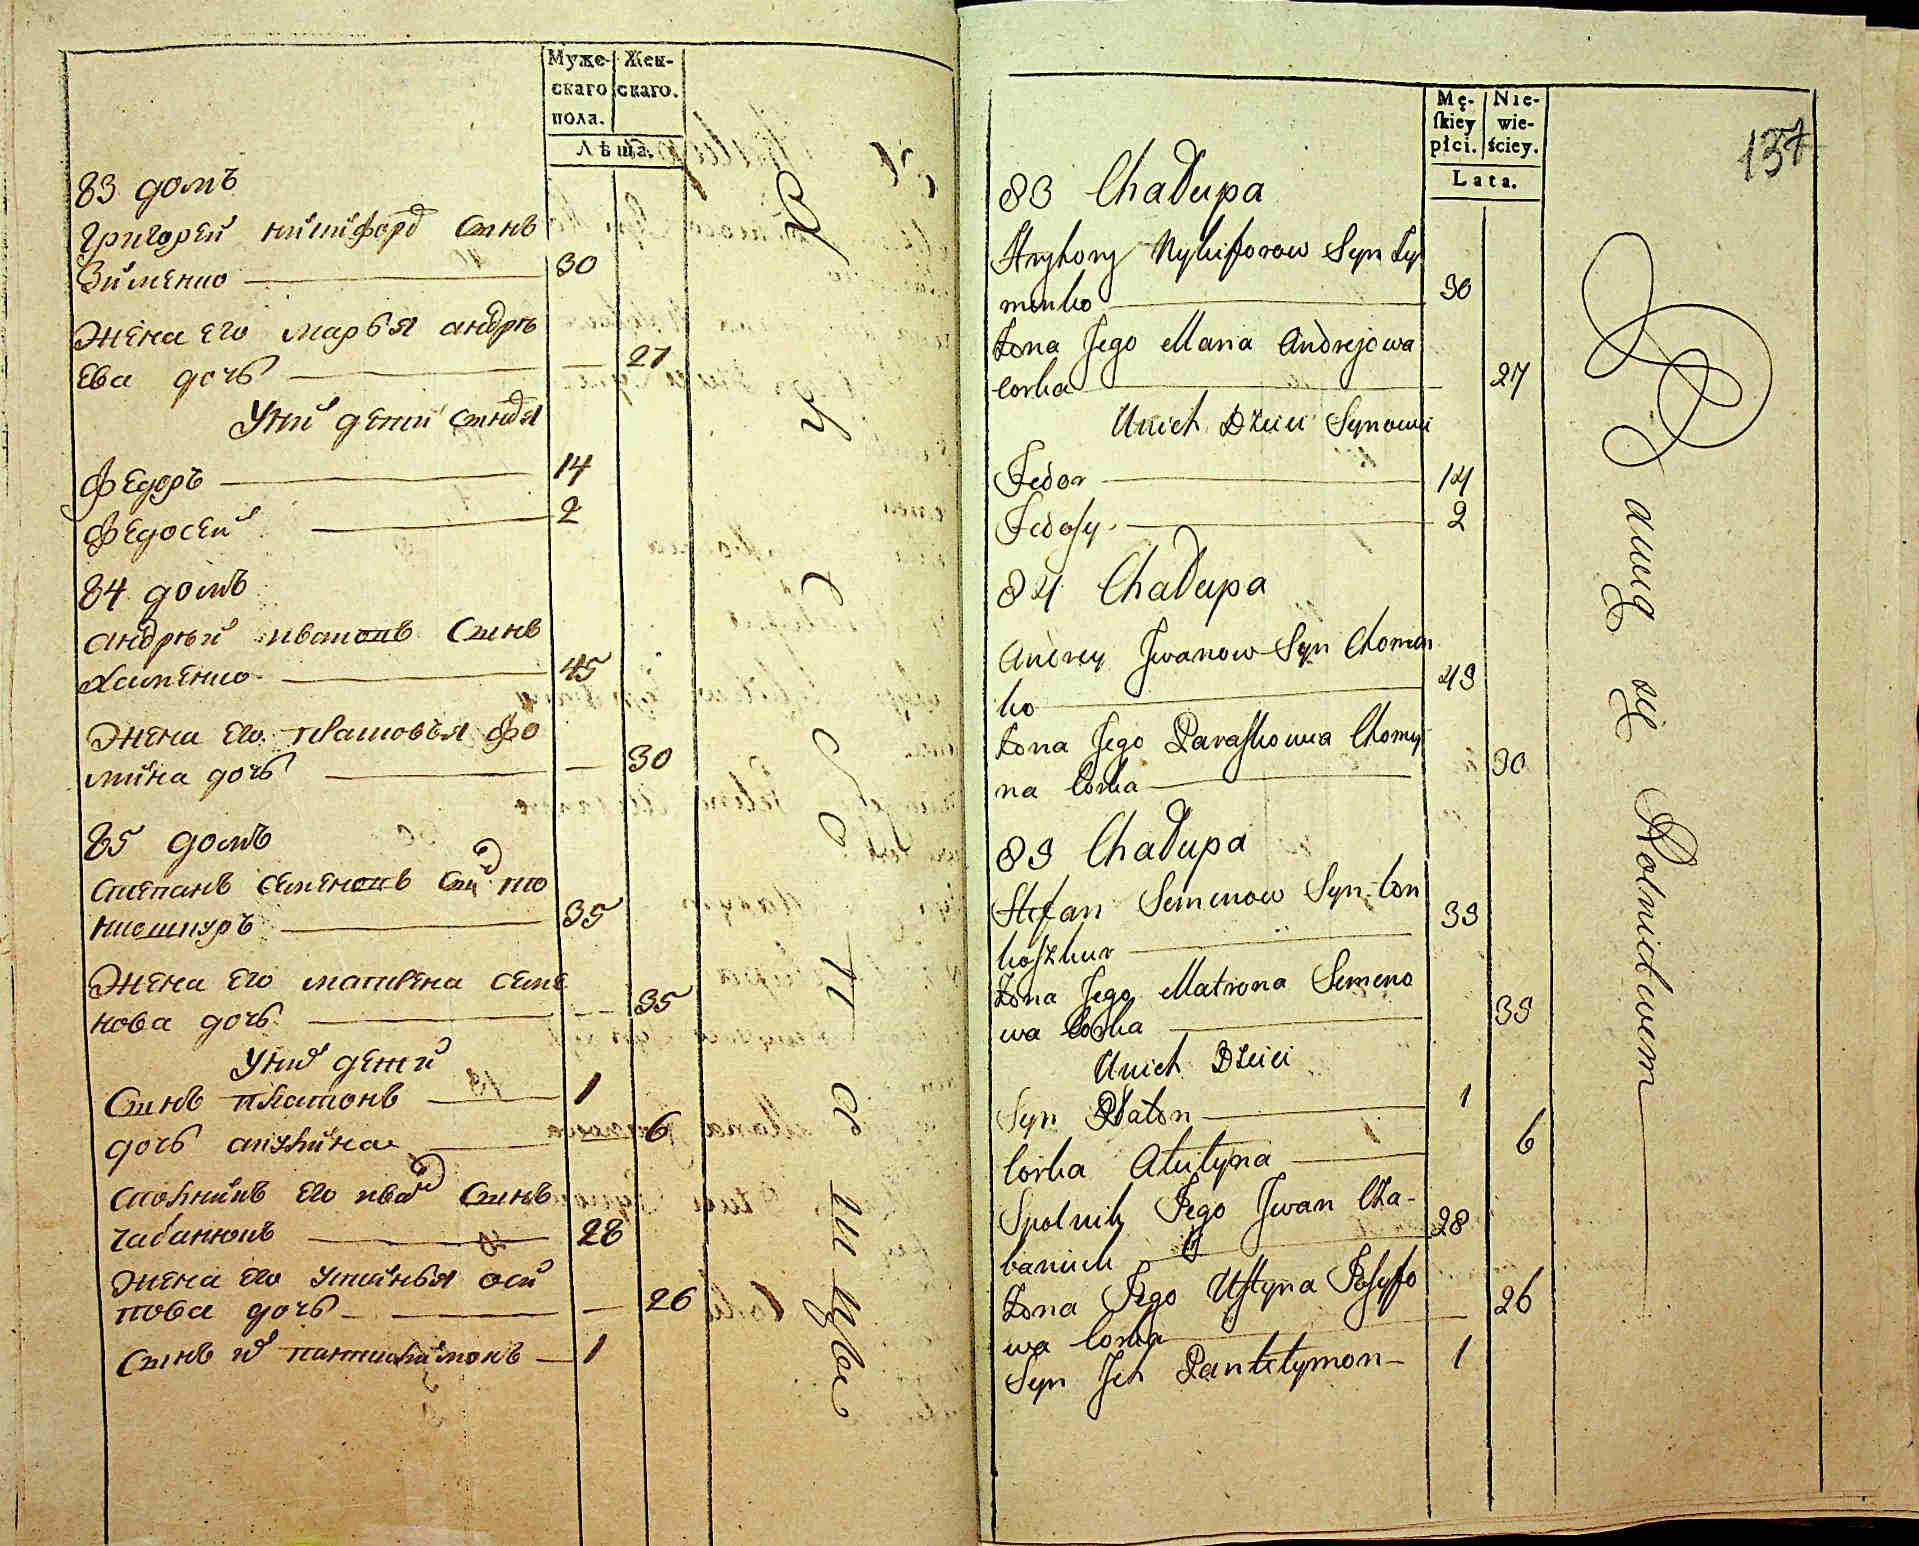 Муже-
скаго
пола.
Жен-
скаго.
Лѣта.
83 домъ
Григорей никифоровъ сынъ
Зименко 30
Жена его марья андрѣ
ева дочь 27
У них дети сыновя
Федоръ 14
Федосей 2
84 домъ
андрѣй ивановъ сынъ
Хоменко 45
Жена его прасковья фо
мина дочь 30
85 домъ
степанъ семеновъ сынъ
35
Жена его матрена семе
нова дочь 35
У них дети
Сынъ платонъ 1
дочь акулина 6
сполникъ его иван сынъ
чабанюкъ 28
Жена его устинья оси
пова дочь 26
Сынъ их пантилимонъ 1
Mę-
skiey
płci.
Nie-
wie-
ściey.
Lata.
137
83 Chałupa
Hryhory Nykiforow Syn Zy
menko 30
Żona Jego Maria Andrejowa
Corka 27
U nich Dzieci Synowie
Fedor 14
Fedosy 2
84 Chałupa
Andrey Jwanow Syn Chomen
ko 45
Żona Jego Paraskowia Chomy
na Corka 30
85 Chałupa
Stefan Semenow Syn Ton
koszkur 35
Żona Jego Matrona Semeno
wa Corka 35
U nich Dzieci
Syn Platon 1
Corka Akulyna 6
Spolnik Jego Jwan Cza-
baniuk 28
Żona Jego Ustyna Josyfo
wa Corka 26
Syn Jch Pantelymon 1
Bawią się Rolnictwem